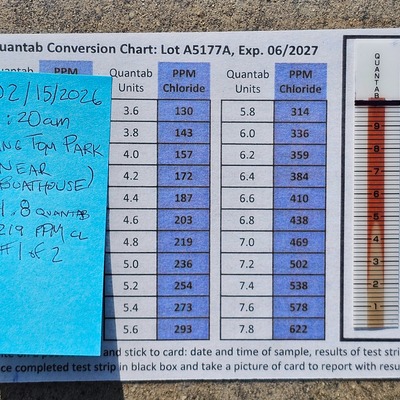 Quantab Conversion Chart: Lot A5177A, Exp. 06/2027
PPM Quantab Units PPM Chloride Quantab Units PPM Chloride
3.6 130 5.8 314
3.8 143 6.0 336
4.0 157 6.2 359
4.2 172 6.4 384
4.4 187 6.6 410
4.6 203 6.8 438
4.8 219 7.0 469
5.0 236 7.2 502
5.2 254 7.4 538
5.4 273 7.6 578
5.6 293 7.8 622
02/15/2026
:20am
Tom Park
Near
Boathouse)
4.8 Quantab
219 PPM CL
#1 of 2
QUANTAB
9
8
7
6
5
4
3
2
1
and stick to card: date and time of sample, results of test strip
completed test strip in black box and take a picture of card to report with